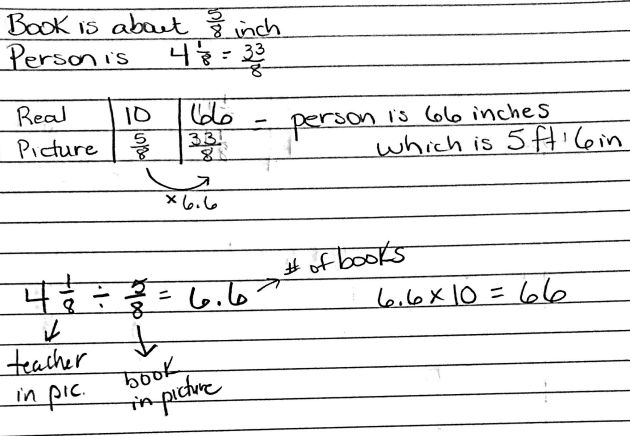 Book is about 5/8 inch
Person is 4 1/8 = 33/8
Real | 10 | 66 - person is 66 inches
Picture | 5/8 | 33/8 which is 5 ft 6 in
× 6.6
4 1/8 ÷ 5/8 = 6.6 → # of books
6.6 × 10 = 66
teacher in pic.
book in picture